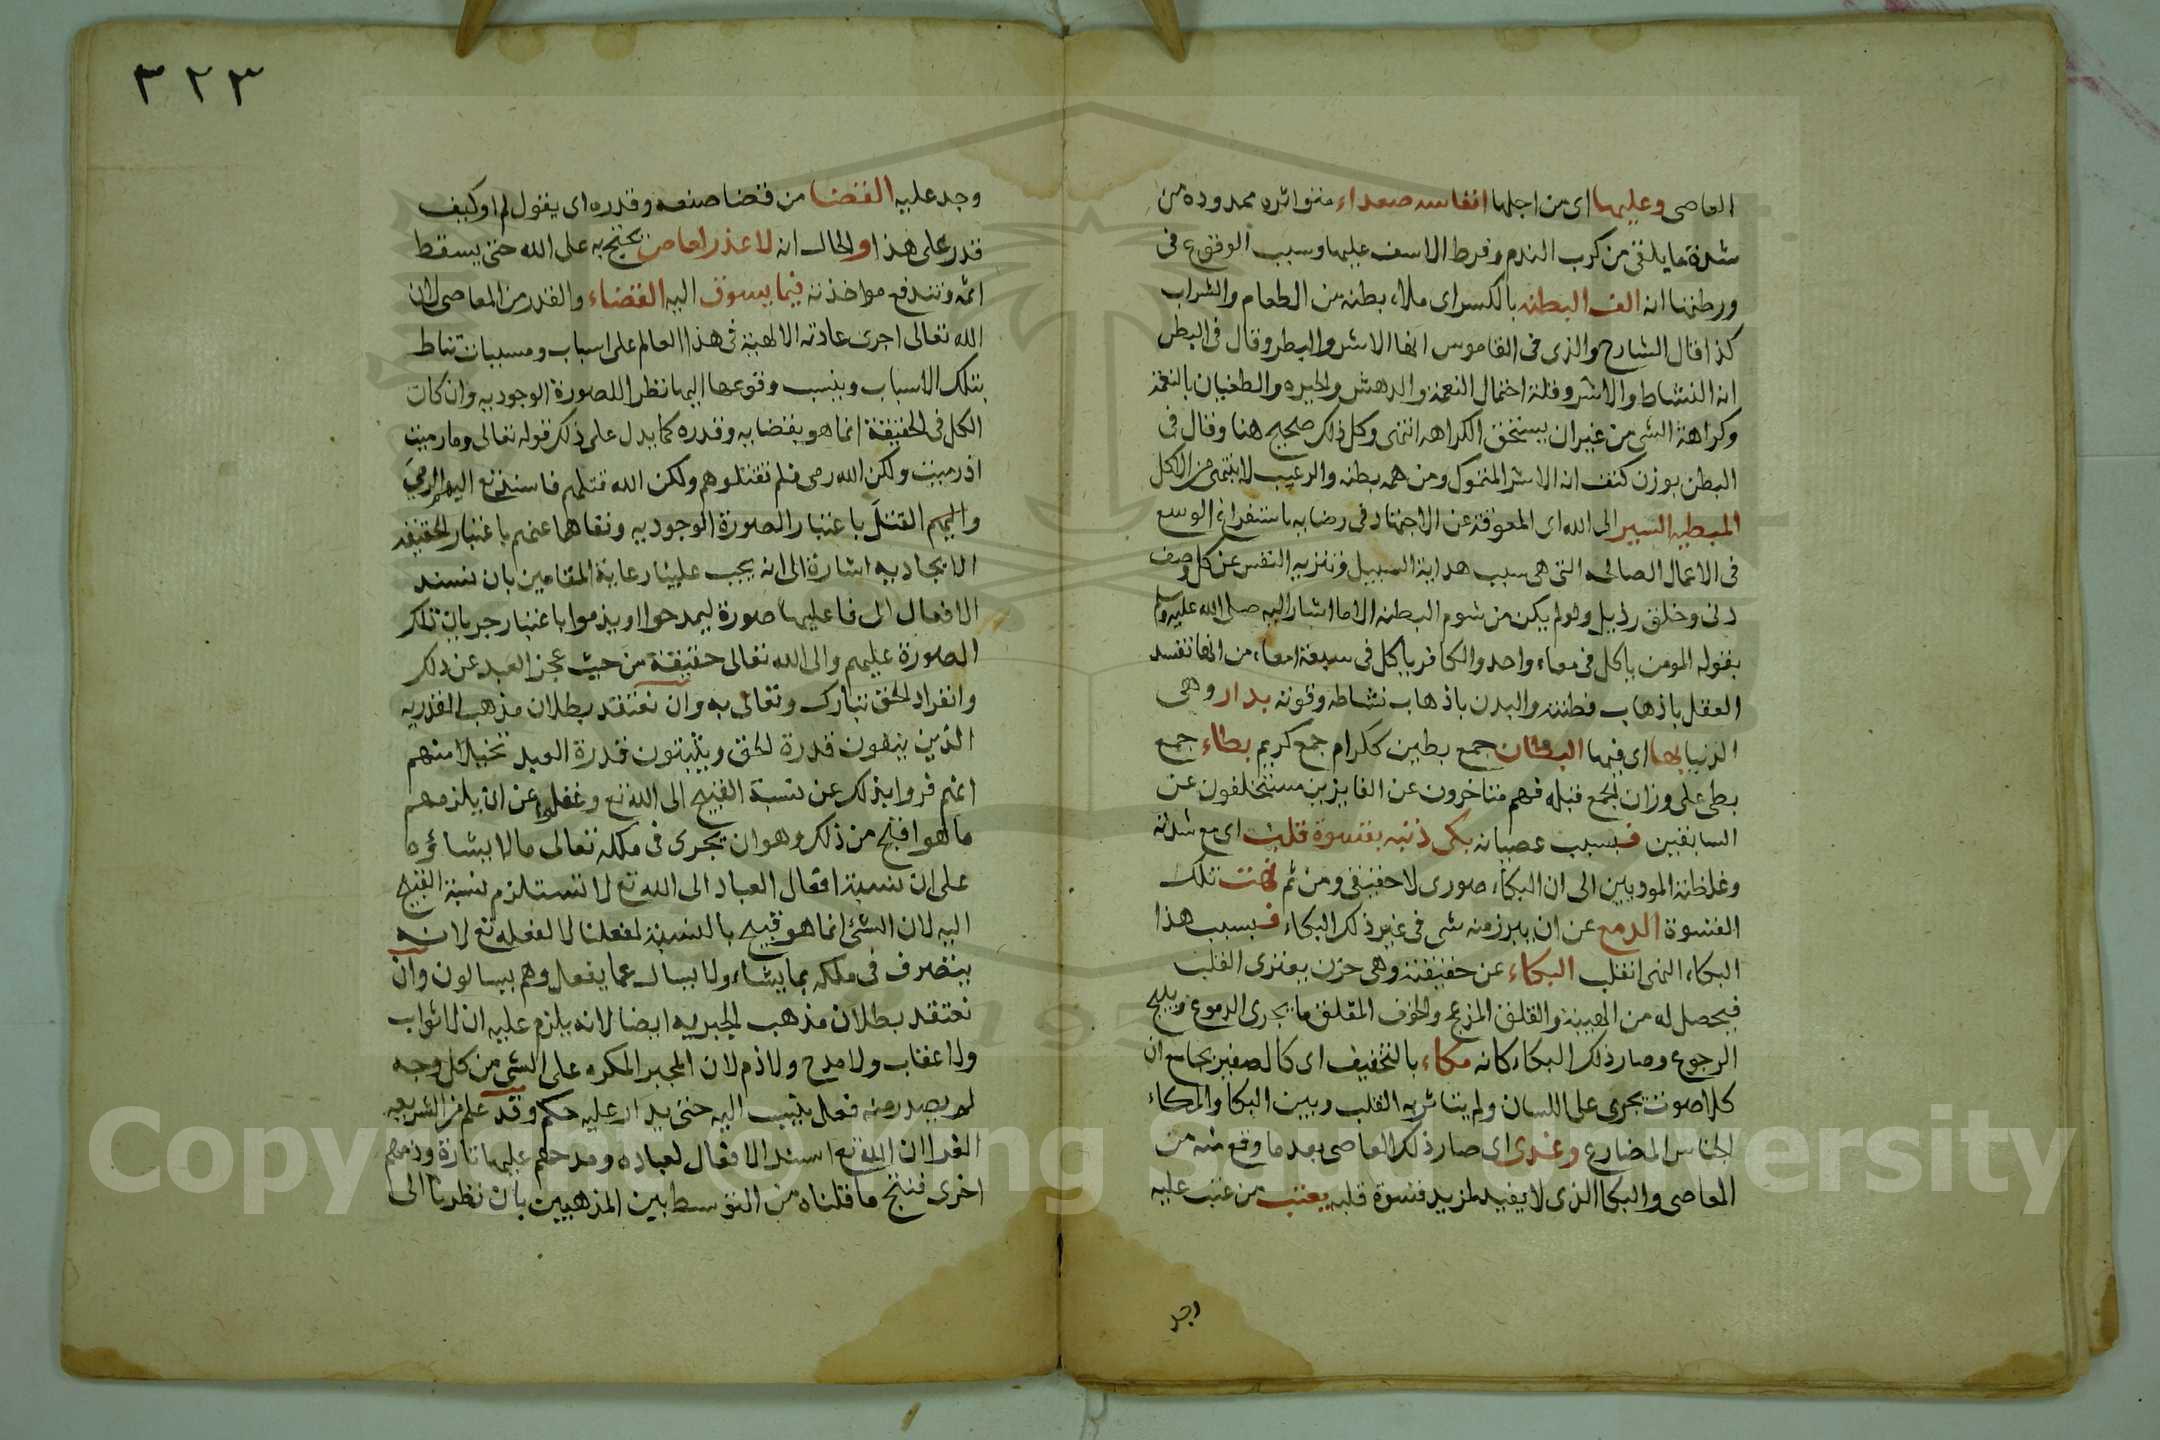 العاصى وعليها اى من اجلها انفاسه صعداء متواتره ممدوده من
شدة ما يلقى من كرب الندم وفرط الاسف عليها وسبب الوقوع فى
ورطتها انه الف البطنه بالكسر اى ملاء بطنه من الطعام والشراب
كذا قال الشارح والذى فى القاموس انها الاشر والبطر وقال فى البطر
انه النشاط والاشر وقلة احتمال النعمة والدهش والحيره والطغيان بالنعمة
وكراهة الشى من غير ان يستحق الكراهه انتهى وكل ذلك صحيح هنا وقال فى
البطن بوزن كتف انه الاشر المتمول ومن همه بطنه والرغيب لا ينتهى من الاكل
المبطيه السير الى الله اى المعوقة عن الاجتهاد فى رضايه باستفراغ الوسع
فى الاعمال الصالحه التى هى سبب هداية السبيل وتنزيه النفس عن كل وصف
دنى وخلق رذيل ولو لم يكن من شوم البطنه الا ما اشار اليه صلى الله عليه وسلم
بقوله المومن ياكل فى معاء واحد والكافر ياكل فى سبعة امعاء من انها تفسد
العقل باذهاب فطنته والبدن باذهاب نشاطه وقوته بدار وهى
الدنيا بها اى فيها البطان جمع بطين ككرام جمع كريم بطاء جمع
بطى على وزان الجمع قبله فهم متاخرون عن الفايزين مستخلفون عن
السابقين فبسبب عصيانه بكى ذنبه بقسوة قلب اى مع شدته
وغلظته الموديين الى ان البكاء صورى لا حقيقى ومن ثم نهت تلك
القسوة الدمع عن ان يبرز منه شى فى غير ذلك البكاء فبسبب هذا
البكاء النهى انقلب البكاء عن حقيقته وهى حزن يعترى القلب
فيحصل له من الهيبة والقلق المزعج والخوف المقلق ما يجرى الدموع ويلج
الرجوع وصار ذلك البكاء كانه مكاء بالتخفيف اى كالصفير بجامع ان
كلا صوت يجرى على اللسان ولم يتاثر به القلب وبين البكا والمكاء
الجناس المضارع وغدى اى صار ذلك العاصى بعد ما وقع منه من
المعاصى والبكا الذى لا يفيد لمزيد قسوة قلبه يعتب من عتب عليه
وجد
٣٢٣
وجد عليه القضا من قضا صنعه وقدره اى يقول لم او كيف
قدر على هذا والحال انه لا عذر لعاص يحتج به على الله حتى يسقط
اثمه وتندفع مواخذته فيما يسوق اليه القضاء والقدر من المعاصى لان
الله تعالى اجرى عادته الالهية فى هذا العالم على اسباب ومسببات تناط
بتلك الاسباب وينسب وقوعها اليها نظرا للصورة الوجوديه وان كان
الكل فى الحقيقة انما هو بقضايه وقدره كما يدل على ذلك قوله تعالى وما رميت
اذ رميت ولكن الله رمى فلم تقتلوهم ولكن الله قتلهم فاسند تع اليه الرمى
واليهم القتل باعتبار الصورة الوجوديه ونفاهما عنهم باعتبار الحقيقه
الايجاديه اشارة الى انه يجب علينا رعاية المقامين بان نسند
الافعال الى فاعليها صورة ليمدحوا او يذموا باعتبار جريان تلك
الصورة عليهم والى الله تعالى حقيقة من حيث عجز العبد عن ذلك
وانفراد الحق تبارك وتعالى به وان نعتقد بطلان مذهب القدريه
الذين ينفون قدرة الحق ويثبتون قدرة العبد تخيلا منهم
انهم فروا بذلك عن نسبة القبيح الى الله تع وغفلوا عن ان يلزمهم
ما هو اقبح من ذلك وهو ان يجرى فى ملكه تعالى ما لا يشاءه
على ان نسبة افعال العباد الى الله تع لا تستلزم نسبة القبيح
اليه لان الشئ انما هو قبيح بالنسبة لفعلنا لا لفعله تع لانه
يتصرف فى ملكه بما يشاء ولا يسال عما يفعل وهم يسالون وان
نعتقد بطلان مذهب الجبريه ايضا لانه يلزم عليه ان لا ثواب
ولا عقاب ولا مدح ولا ذم لان المجبر المكره على الشى من كل وجه
لم يصدر منه فعل ينسب اليه حتى يدار عليه حكم وقد علم من الشريعه
الغرا ان الله تع اسند الافعال لعباده ومدحهم عليها تارة وذمهم
اخرى فنتج ما قلناه من التوسط بين المذهبين بان نظرنا الى